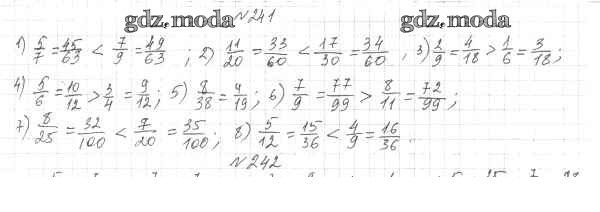 gdz.moda gdz.moda
№241
1) 5/7 = 45/63 < 7/9 = 49/63 ; 2) 11/20 = 33/60 < 17/30 = 34/60 , 3) 2/9 = 4/18 > 1/6 = 3/18 ;
4) 5/6 = 10/12 > 3/4 = 9/12 ; 5) 8/38 = 4/19 ; 6) 7/9 = 77/99 > 8/11 = 72/99 ;
7) 8/25 = 32/100 < 7/20 = 35/100 ; 8) 5/12 = 15/36 < 4/9 = 16/36
№242